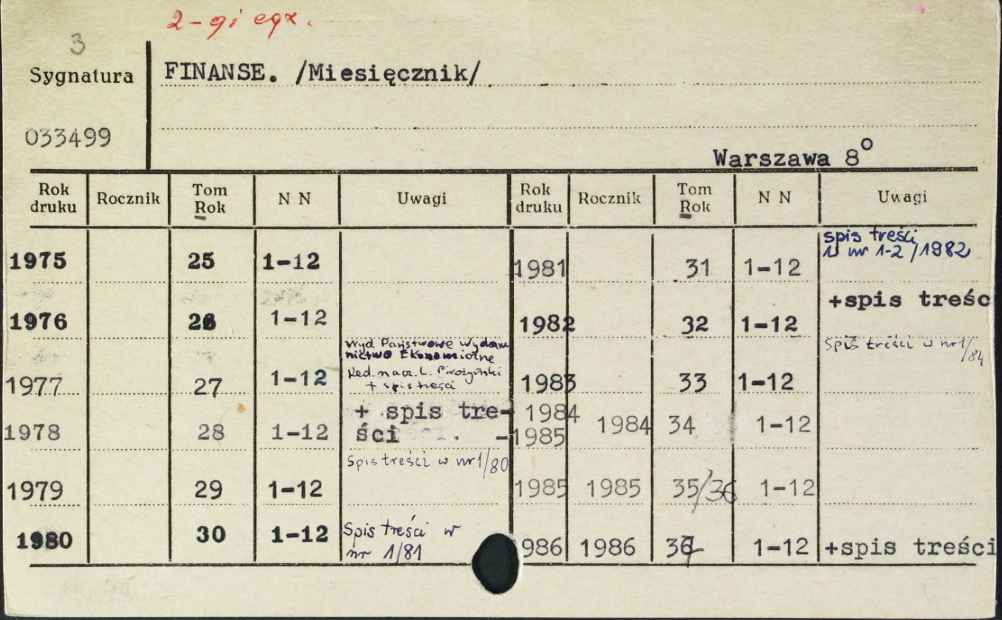 2-gi egz.
3
Sygnatura
FINANSE. /Miesięcznik/
033499
Warszawa 8°
Rok druku Rocznik Tom Rok N N Uwagi Rok druku Rocznik Tom Rok N N Uwagi
spis treści
w nr 1-2/1982
1975 25 1-12 1981 31 1-12
+spis treśc
1976 26 1-12 1982 32 1-12
Wyd Państwowe Wydaw
nictwo Ekonomiczne
Spis treści w nr 1/84
Red. nacz. L.
+ spis treści
1977 27 1-12 1983 33 1-12
+ spis tre-
ści -
1978 28 1-12 1984 1985 1984 34 1-12
Spis treści w nr 1/80
1979 29 1-12 1985 1985 35/36 1-12
Spis treści w
nr 1/81
1980 30 1-12 986 1986 37 1-12 +spis treści